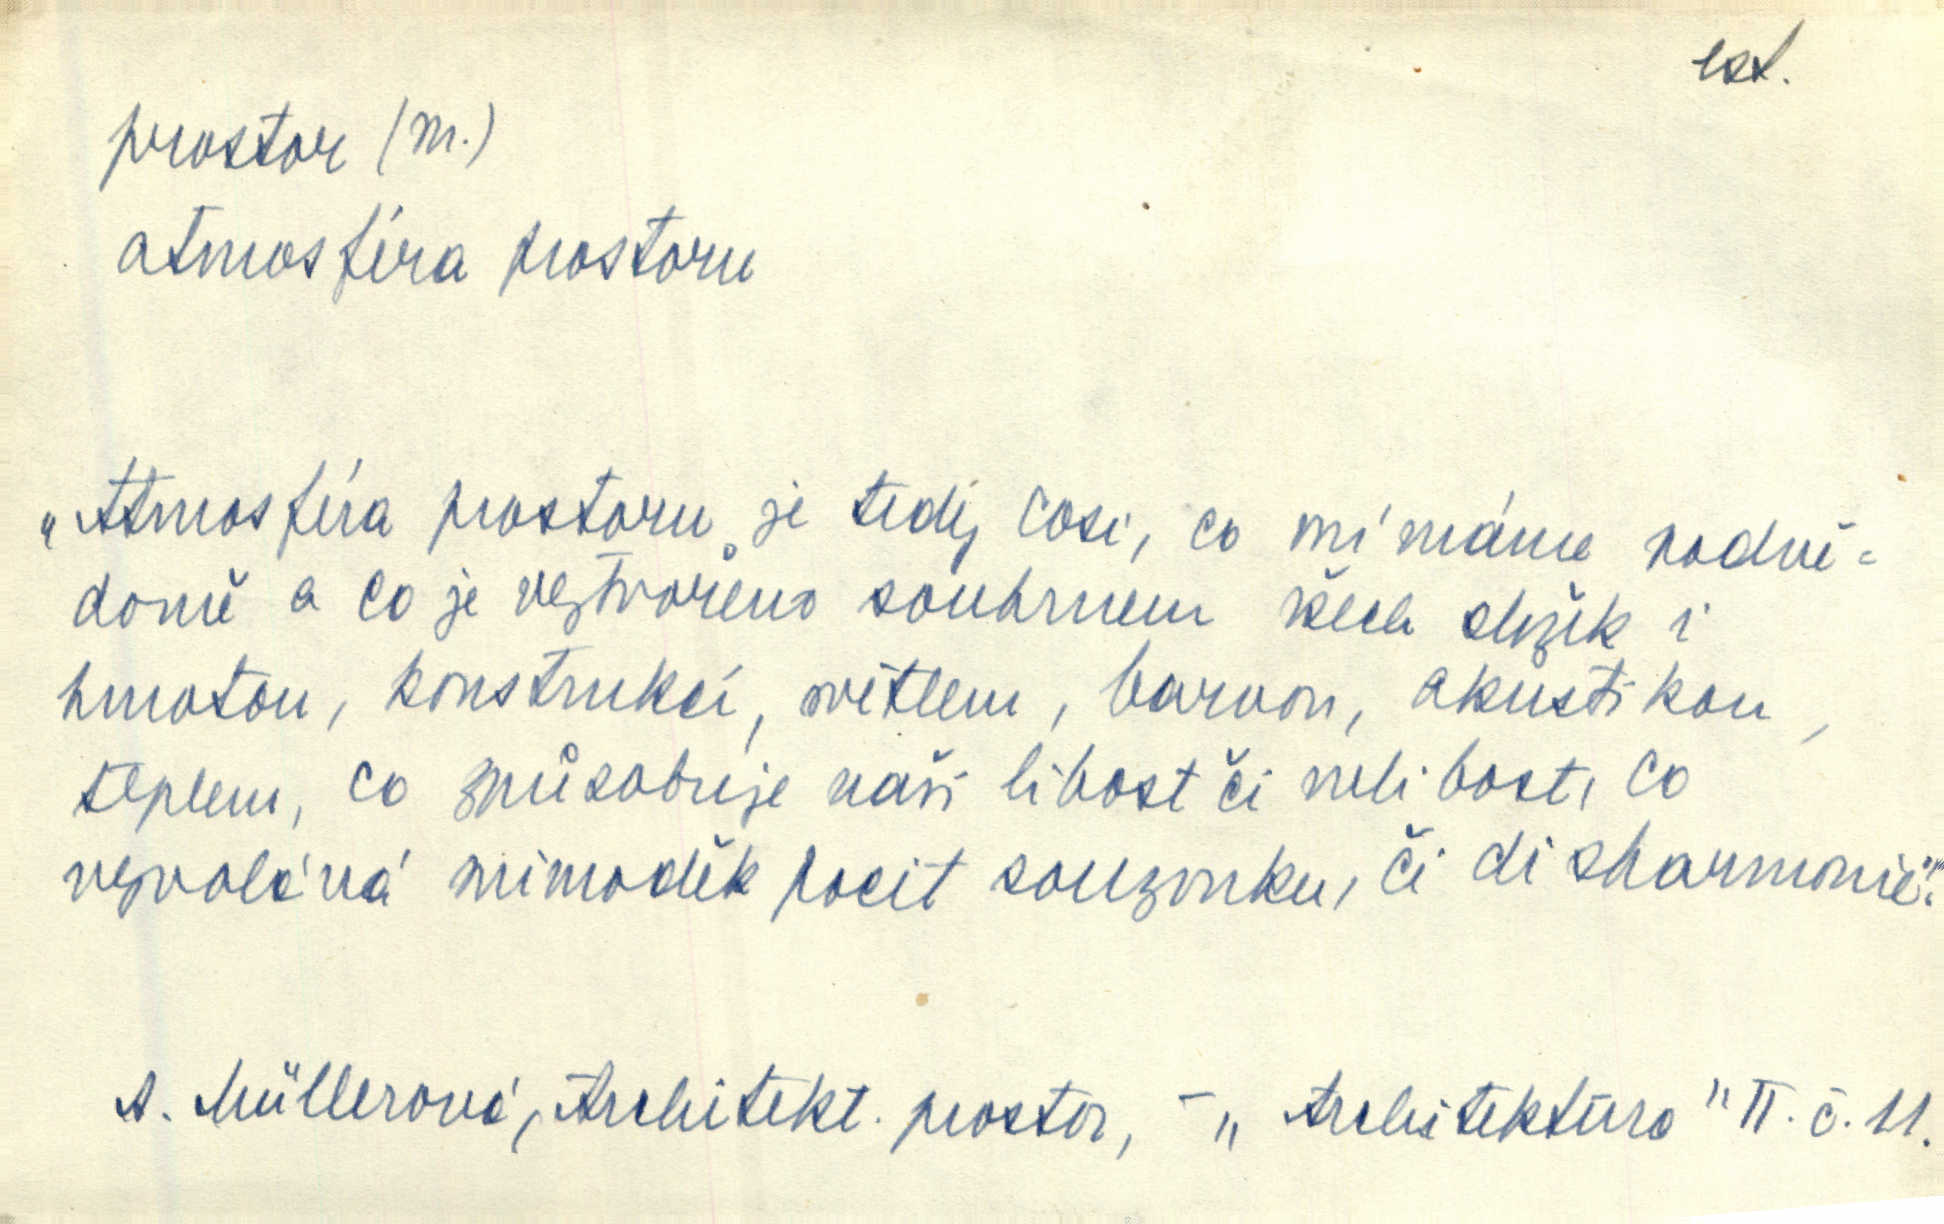 est.
prostor (m.)
atmosféra prostoru
„Atmosféra prostoru„ je tedy cosi, co vnímáme podvě-
domě a co je vytvořeno souhrnem všech složek i
hmotou, konstrukcí, světlem, barvou, akustikou,
teplem, co způsobuje naši libost či nelibost, co
vyvolává mimoděk pocit souzvuku, či disharmonie".
A. Müllerová, Architekt. prostor, - „Architektura" II. č. 11.